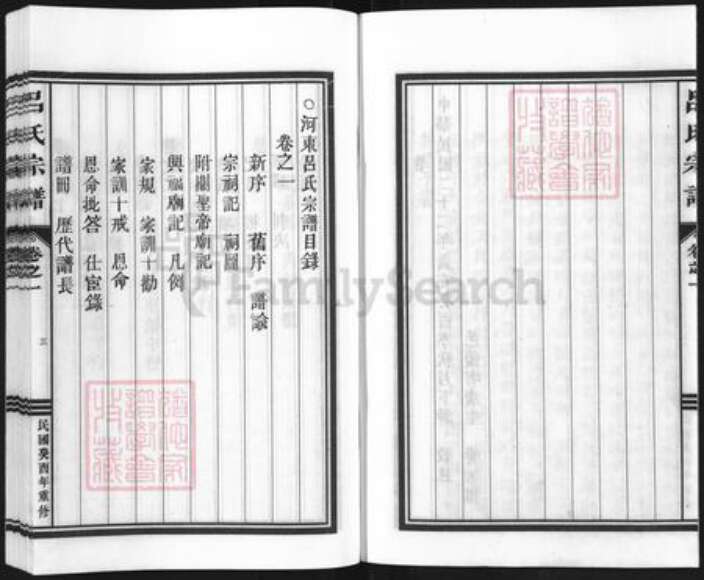 呂氏宗譜
卷之一
○河東呂氏宗譜目錄
卷之一
新序 舊序 譜諭
宗祠記 祠圖
附關聖帝廟記
興福廟記 凡例
家規 家訓十勸
家訓十戒 恩命
恩命批答 仕宦錄
譜圖 歷代譜長
呂氏宗譜
卷之一
三
民國癸酉年重修
FamilySearch